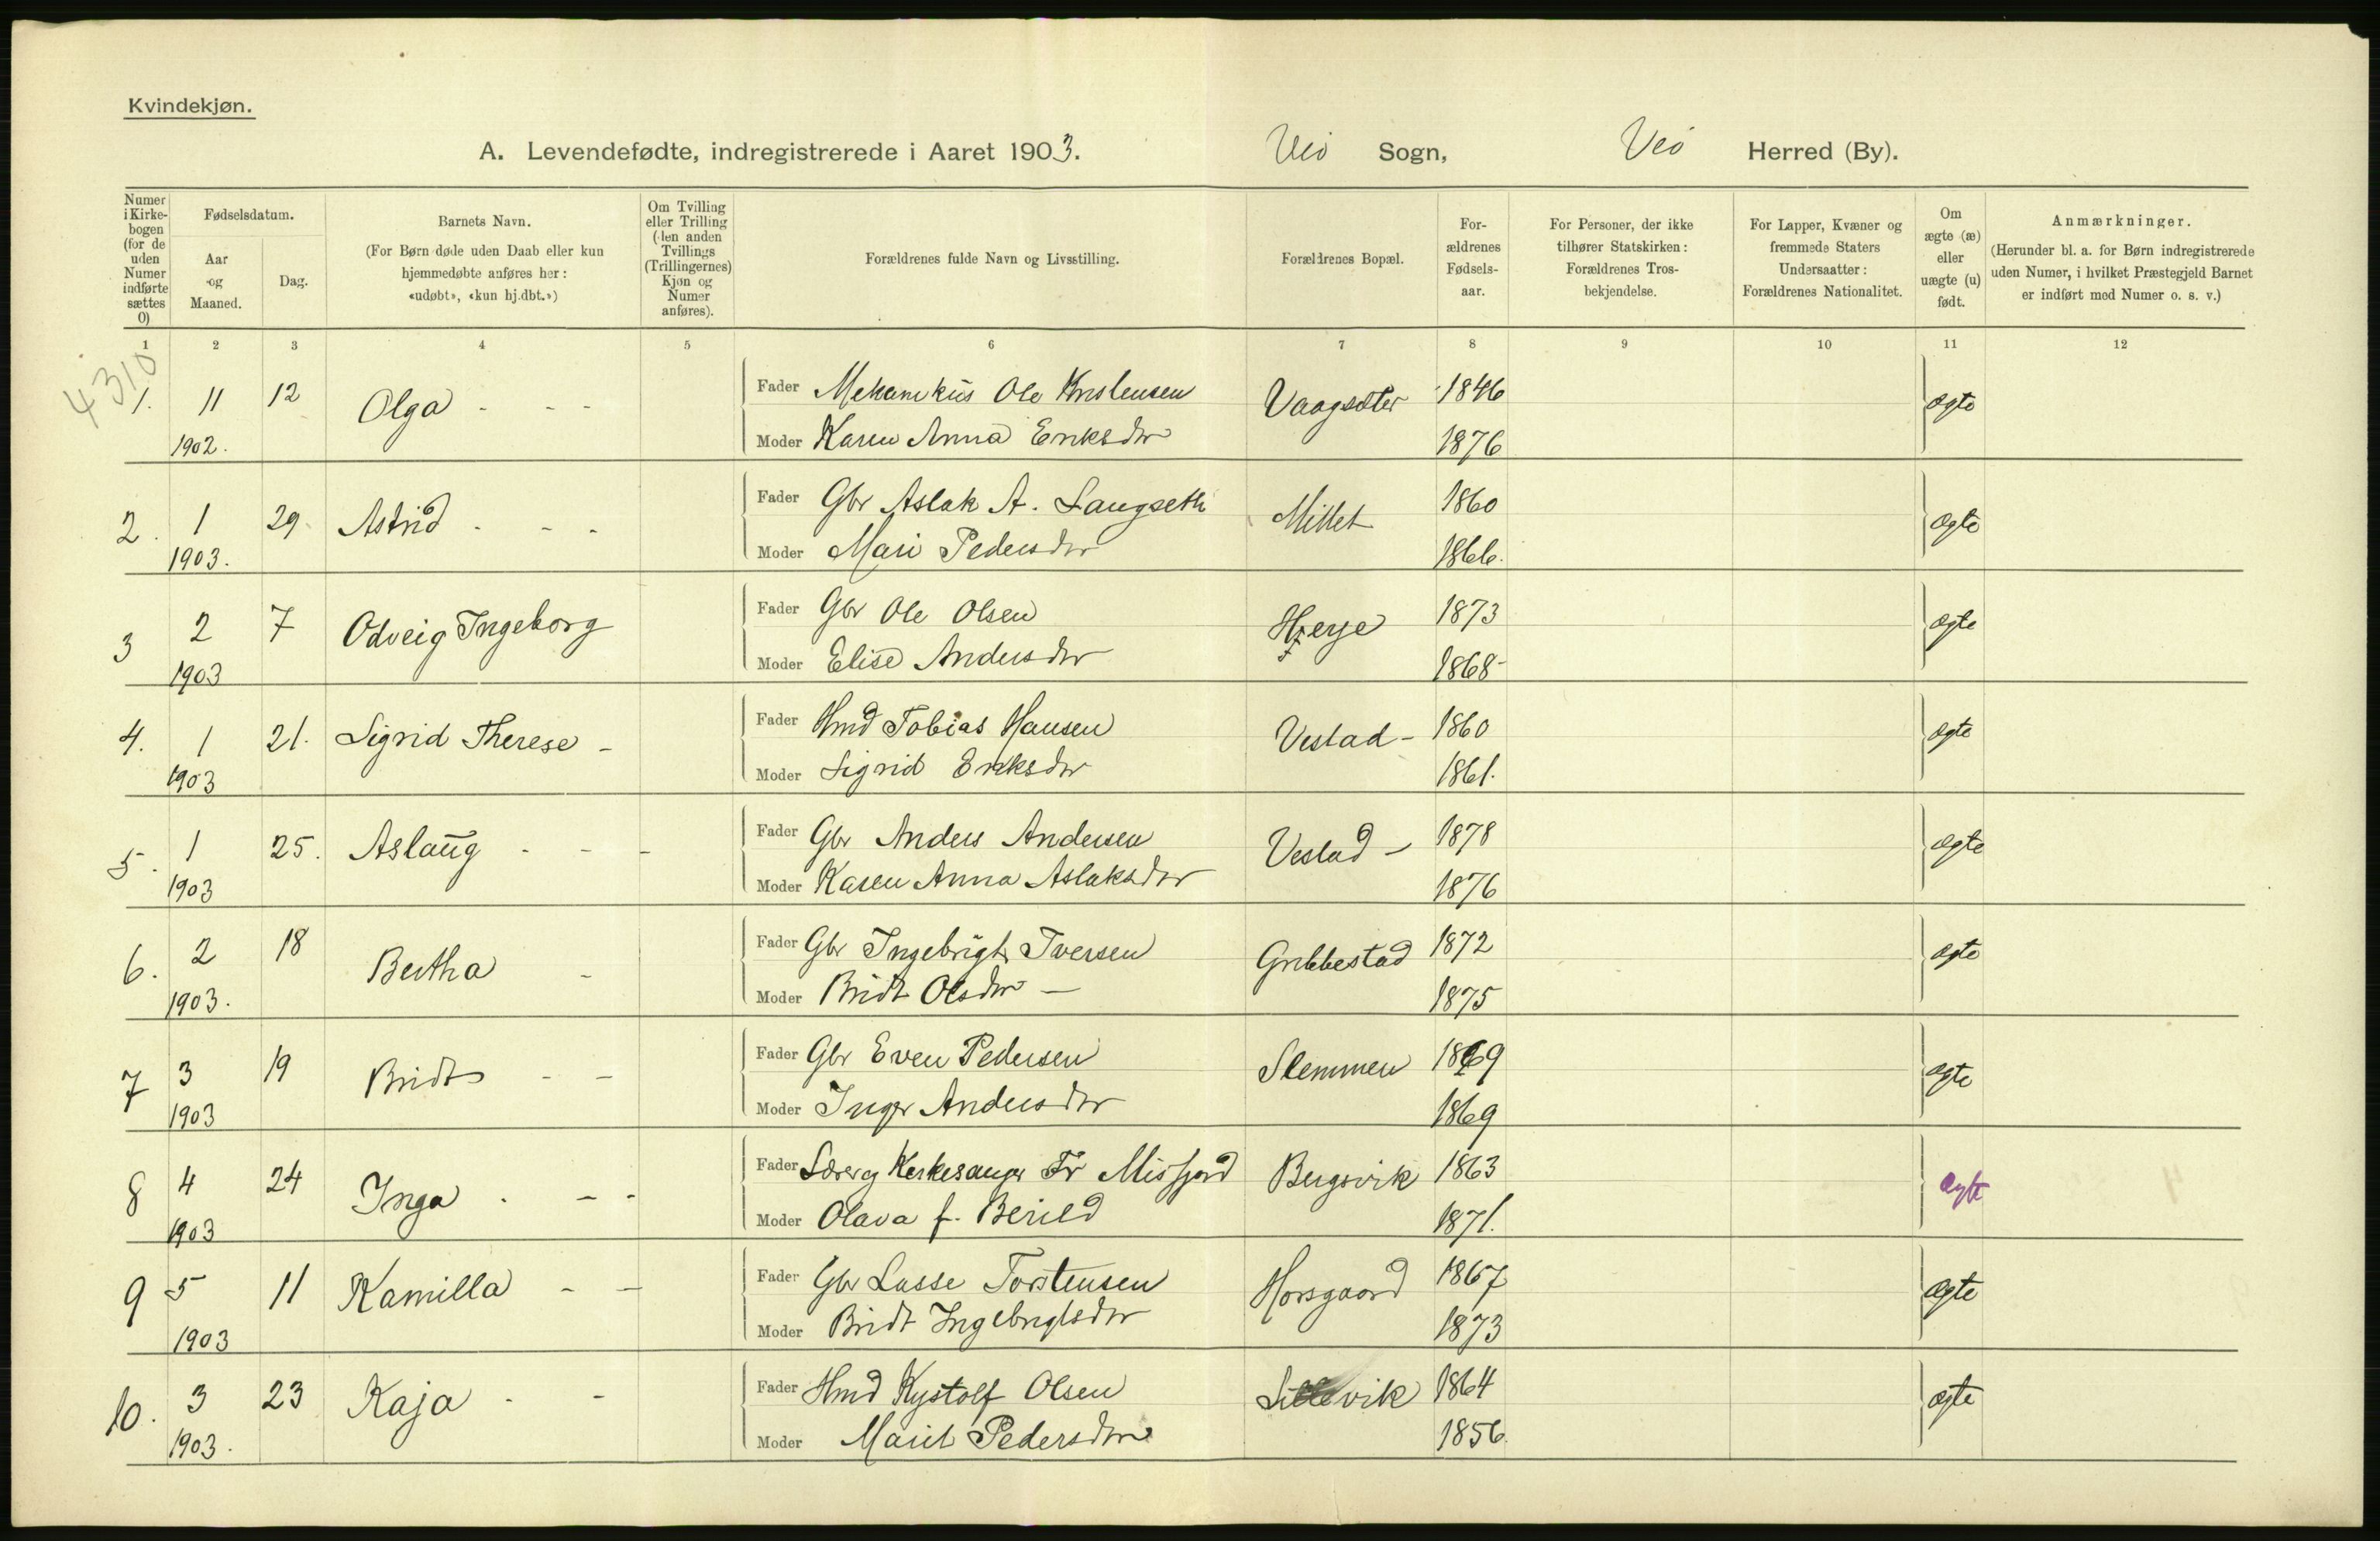 Kvindekjøn.
A. Levendefødte, indregistrerede i Aaret 1903. Veø Sogn, Veø Herred (By).
Numer i Kirkebogen (for de uden Numer indførte sættes 0)
Fødselsdatum.
Aar og Maaned.
Dag.
Barnets Navn.
(For Børn døde uden Daab eller kun hjemmedøbte anføres her: «udøbt», «kun hj.dbt.»)
Om Tvilling eller Trilling (den anden Tvillings (Trillingernes) Kjøn og Numer anføres).
Forældrenes fulde Navn og Livsstilling.
Forældrenes Bopæl.
Forældrenes Fødselsaar.
For Personer, der ikke tilhører Statskirken: Forældrenes Trosbekjendelse.
For Lapper, Kvæner og fremmede Staters Undersaatter: Forældrenes Nationalitet.
Om ægte (æ) eller uægte (u) født.
Anmærkninger.
(Herunder bl. a. for Børn indregistrerede uden Numer, i hvilket Præstegjeld Barnet er indført med Numer o. s. v.)
1 2 3 4 5 6 7 8 9 10 11 12
4310
1. 11 12 Olga - - - Fader Mekanikus Ole Kristensen Vaagsæter 1846 ægte
1902. Moder Karen Anna Eriksdtr 1876
2. 1 29. Astrid - - - Fader Gbr Aslak A. Langseth Mittet 1860 ægte
1903. Moder Mari Pedersdtr 1866.
3 2 7 Odveig Ingeborg Fader Gbr Ole Olsen Hjerje 1873 ægte
1903 Moder Elise Andersdtr 1868-
4. 1 21. Sigrid Therese - Fader Hmd Tobias Hansen Vestad - 1860 ægte
1903 Moder Sigrid Eriksdtr 1861.
5. 1 25. Aslaug - - - Fader Gbr Anders Andersen Vestad - 1878 ægte
1903 Moder Karen Anna Aslaksdtr 1876
6. 2 18 Bertha - Fader Gbr Ingebrigt Iversen Gribbestad 1872 ægte
1903. Moder Bridt Olsdtr - 1875
7 3 19 Bridt - - Fader Gbr Even Pedersen Slemmen 1869 ægte
1903 Moder Inger Andersdtr 1869
8 4 24 Inga - - - Fader Lærer og Kirkesanger Fr Misfjord Bergsvik 1863 ægte
1903 Moder Olava f. Berild 1871.
9 5 11 Kamilla - - Fader Gbr Lasse Torstensen Horsgaard 1867 ægte
1903 Moder Bridt Ingebrigtsdtr 1873
10. 3 23 Kaja - - Fader Hmd Kystolf Olsen Lillevik 1864 ægte
1903. Moder Marit Pedersdtr 1856.